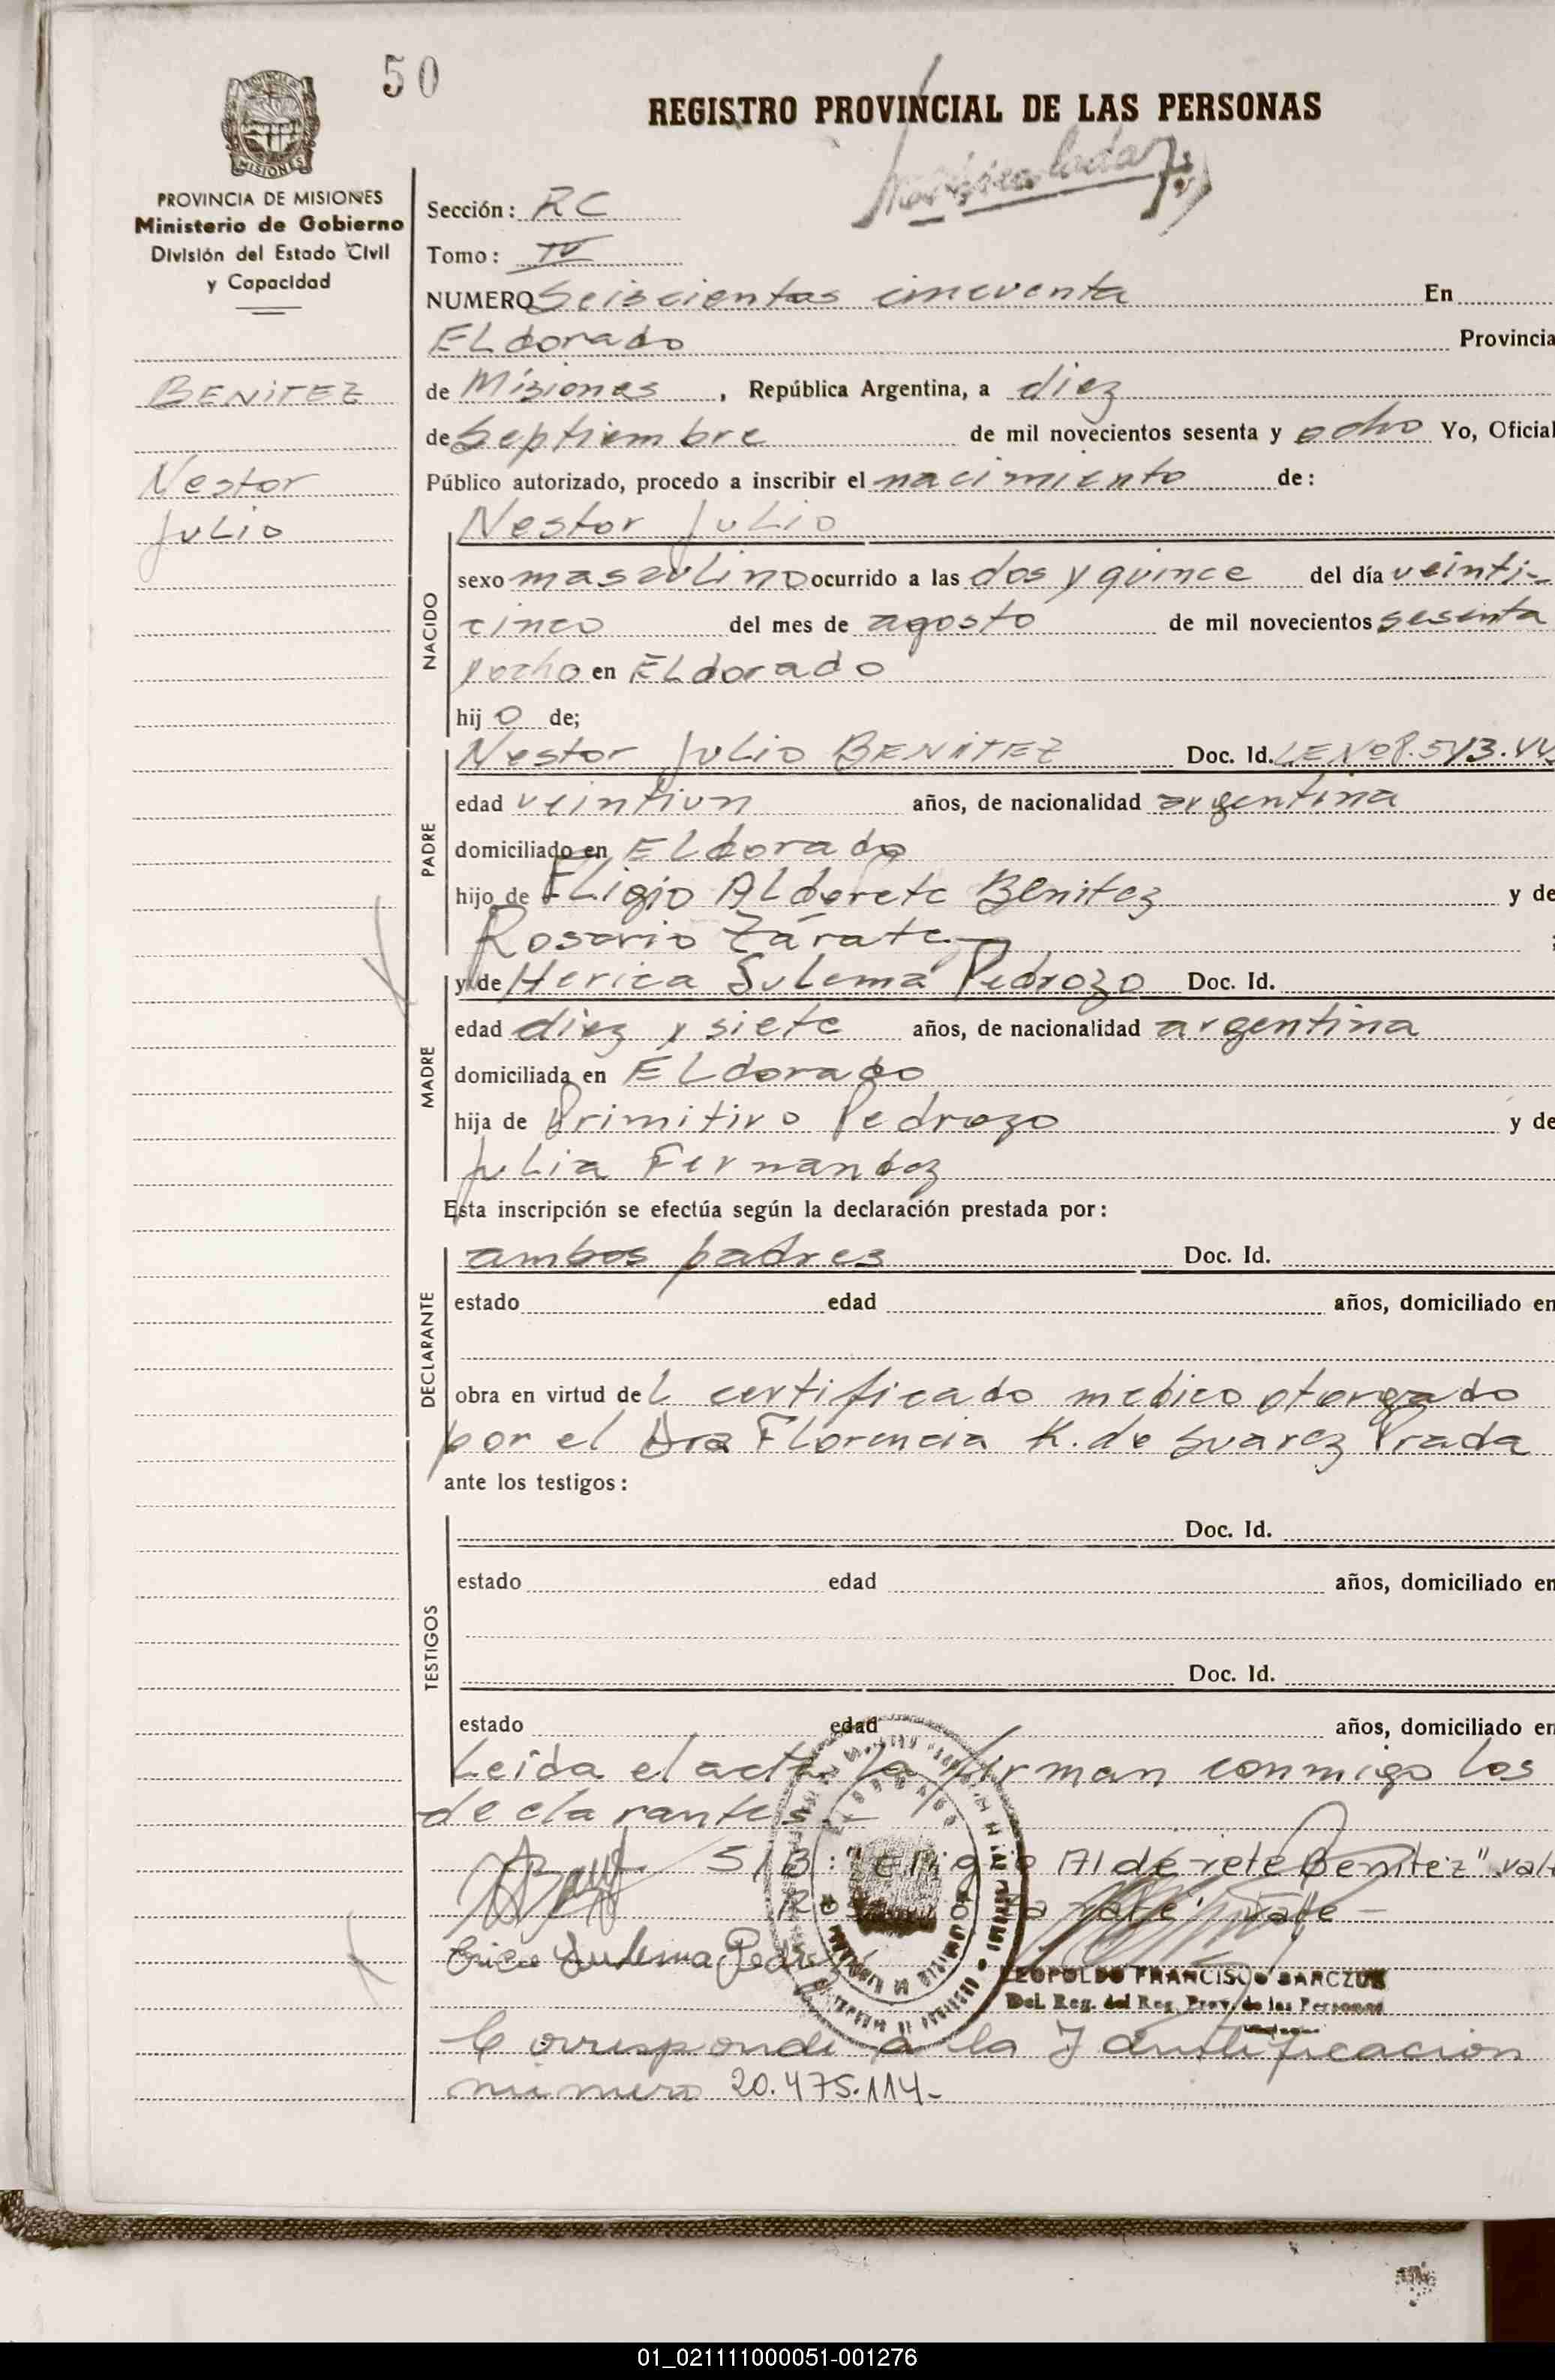 50
REGISTRO PROVINCIAL DE LAS PERSONAS
MISIONES
PROVINCIA DE MISIONES
Ministerio de Gobierno
División del Estado Civil
y Capacidad
BENITEZ
Nestor
Julio
Sección: RC
Tomo: IV
NUMERO Seiscientos cincuenta En
ELdorado Provincia
de Misiones, República Argentina, a diez
de Septiembre de mil novecientos sesenta y ocho Yo, Oficial
Público autorizado, procedo a inscribir el nacimiento de:
Nestor Julio
NACIDO
sexo masculino ocurrido a las dos y quince del día veinti-
cinco del mes de agosto de mil novecientos sesenta
y ocho en ELdorado
hijo de;
PADRE
Nestor Julio BENITEZ Doc. Id. LE Nº 8.513.
edad veintiun años, de nacionalidad argentina
domiciliado en ELdorado
hijo de ELigio ALderete Benitez y de
Rosario Zárate
MADRE
y de Herica Sulema Pedrozo Doc. Id.
edad diez y siete años, de nacionalidad argentina
domiciliada en ELdorado
hija de Primitivo Pedrozo y de
Julia Fernandez
Esta inscripción se efectúa según la declaración prestada por:
DECLARANTE
ambos padres Doc. Id.
estado edad años, domiciliado en
obra en virtud del certificado medico otorgado
por el Dra Florencia K. de Suarez Prada
ante los testigos:
TESTIGOS
Doc. Id.
estado edad años, domiciliado en
Doc. Id.
estado edad años, domiciliado en
Leida el acta la firman conmigo los
declarantes.-
S/B: "Eligio Alderete Benitez" vale
Vale -
Erica Sulema Pedrozo
LEOPOLDO FRANCISCO SARCZUK
Del. Reg. del Reg. Prov. de las Personas
Corresponde a la Identificacion
numero 20.475.114-
01_021111000051-001276